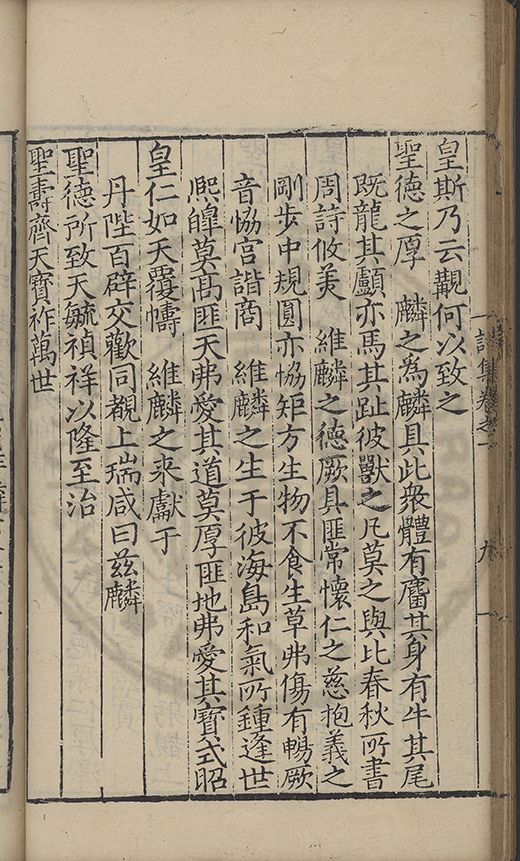 皇斯乃云覯何以致之
聖德之厚　麟之為麟具此衆體有麕其身有牛其尾
既龍其顱亦馬其趾彼獸之凡莫之與比春秋所書
周詩攸美　維麟之德厥具匪常懷仁之慈抱義之
剛步中規圓亦協矩方生物不食生草弗傷有暢厥
音協宮諧商　維麟之生于彼海島和氣所鍾逢世
熙皡莫高匪天弗愛其道莫厚匪地弗愛其寶式昭
皇仁如天覆幬　維麟之来獻于
丹陛百辟交歡同覩上瑞咸曰茲麟
聖德所致天毓禎祥以隆至治
聖壽齊天寶祚萬世
詩集卷之一
九